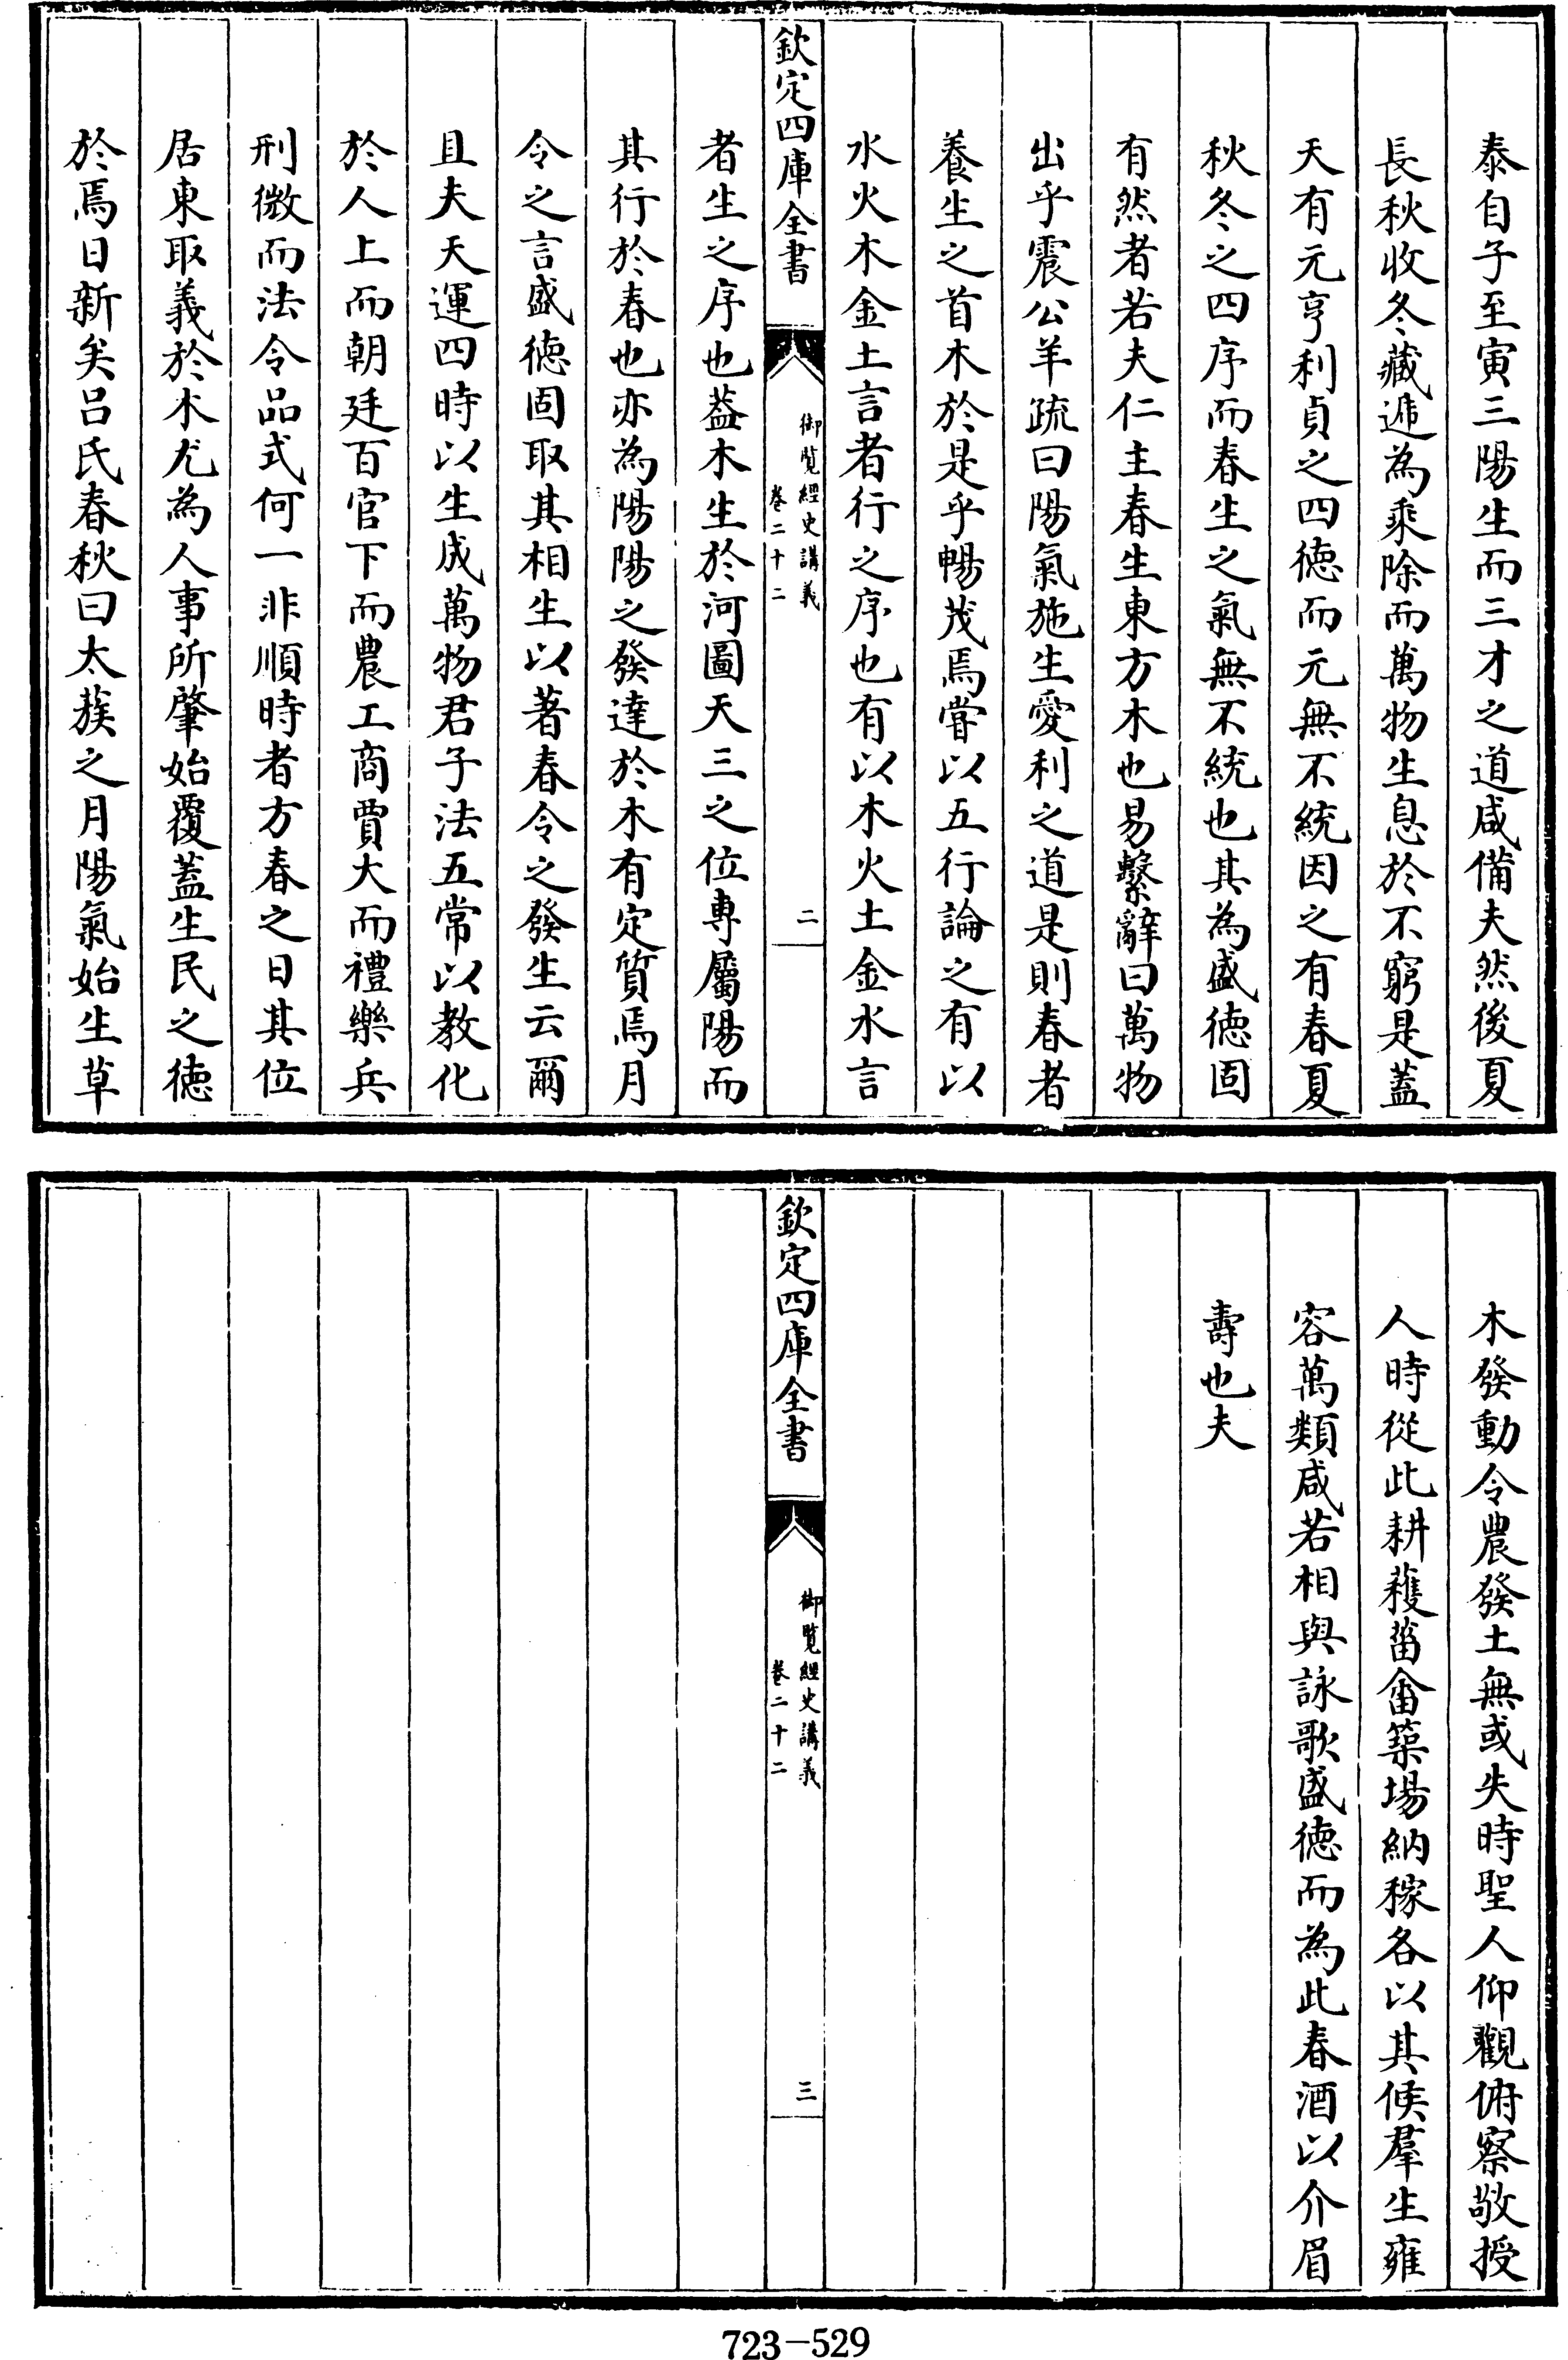 泰自子至寅三陽生而三才之道咸備夫然後夏
長秋收冬藏遞為乘除而萬物生息於不窮是蓋
天有元亨利貞之四德而元無不統因之有春夏
秋冬之四序而春生之氣無不統也其為盛德固
有然者若夫仁主春生東方木也易繫辭曰萬物
出乎震公羊疏曰陽氣施生愛利之道是則春者
養生之首木於是乎暢茂焉嘗以五行論之有以
水火木金土言者行之序也有以木火土金水言
欽定四庫全書
御覽經史講義
卷二十二
二
者生之序也葢木生於河圖天三之位專屬陽而
其行於春也亦為陽陽之發達於木有定質焉月
令之言盛德固取其相生以著春令之發生云爾
且夫天運四時以生成萬物君子法五常以教化
於人上而朝廷百官下而農工商賈大而禮樂兵
刑微而法令品式何一非順時者方春之日其位
居東取義於木尤為人事所肇始覆蓋生民之德
於焉日新矣呂氏春秋曰太蔟之月陽氣始生草
木發動令農發土無或失時聖人仰觀俯察敬授
人時從此耕穫菑畬築場納稼各以其候羣生雍
容萬類咸若相與詠歌盛德而為此春酒以介眉
壽也夫
欽定四庫全書
御覽經史講義
卷二十二
三
723-529